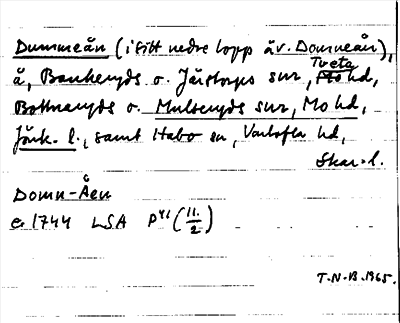 Dummeån (i sitt nedre lopp äv. Domneån),
å, Bankeryds o. Järstorps snr, Tveta hd,
Bottnaryds o. Mulseryds snr, Mo hd,
Jönk. l., samt Habo sn, Vartofta hd,
Skar. l.
Domn-Åen
c. 1744 LSA P41 (11/2)
T.N-B. 1965.